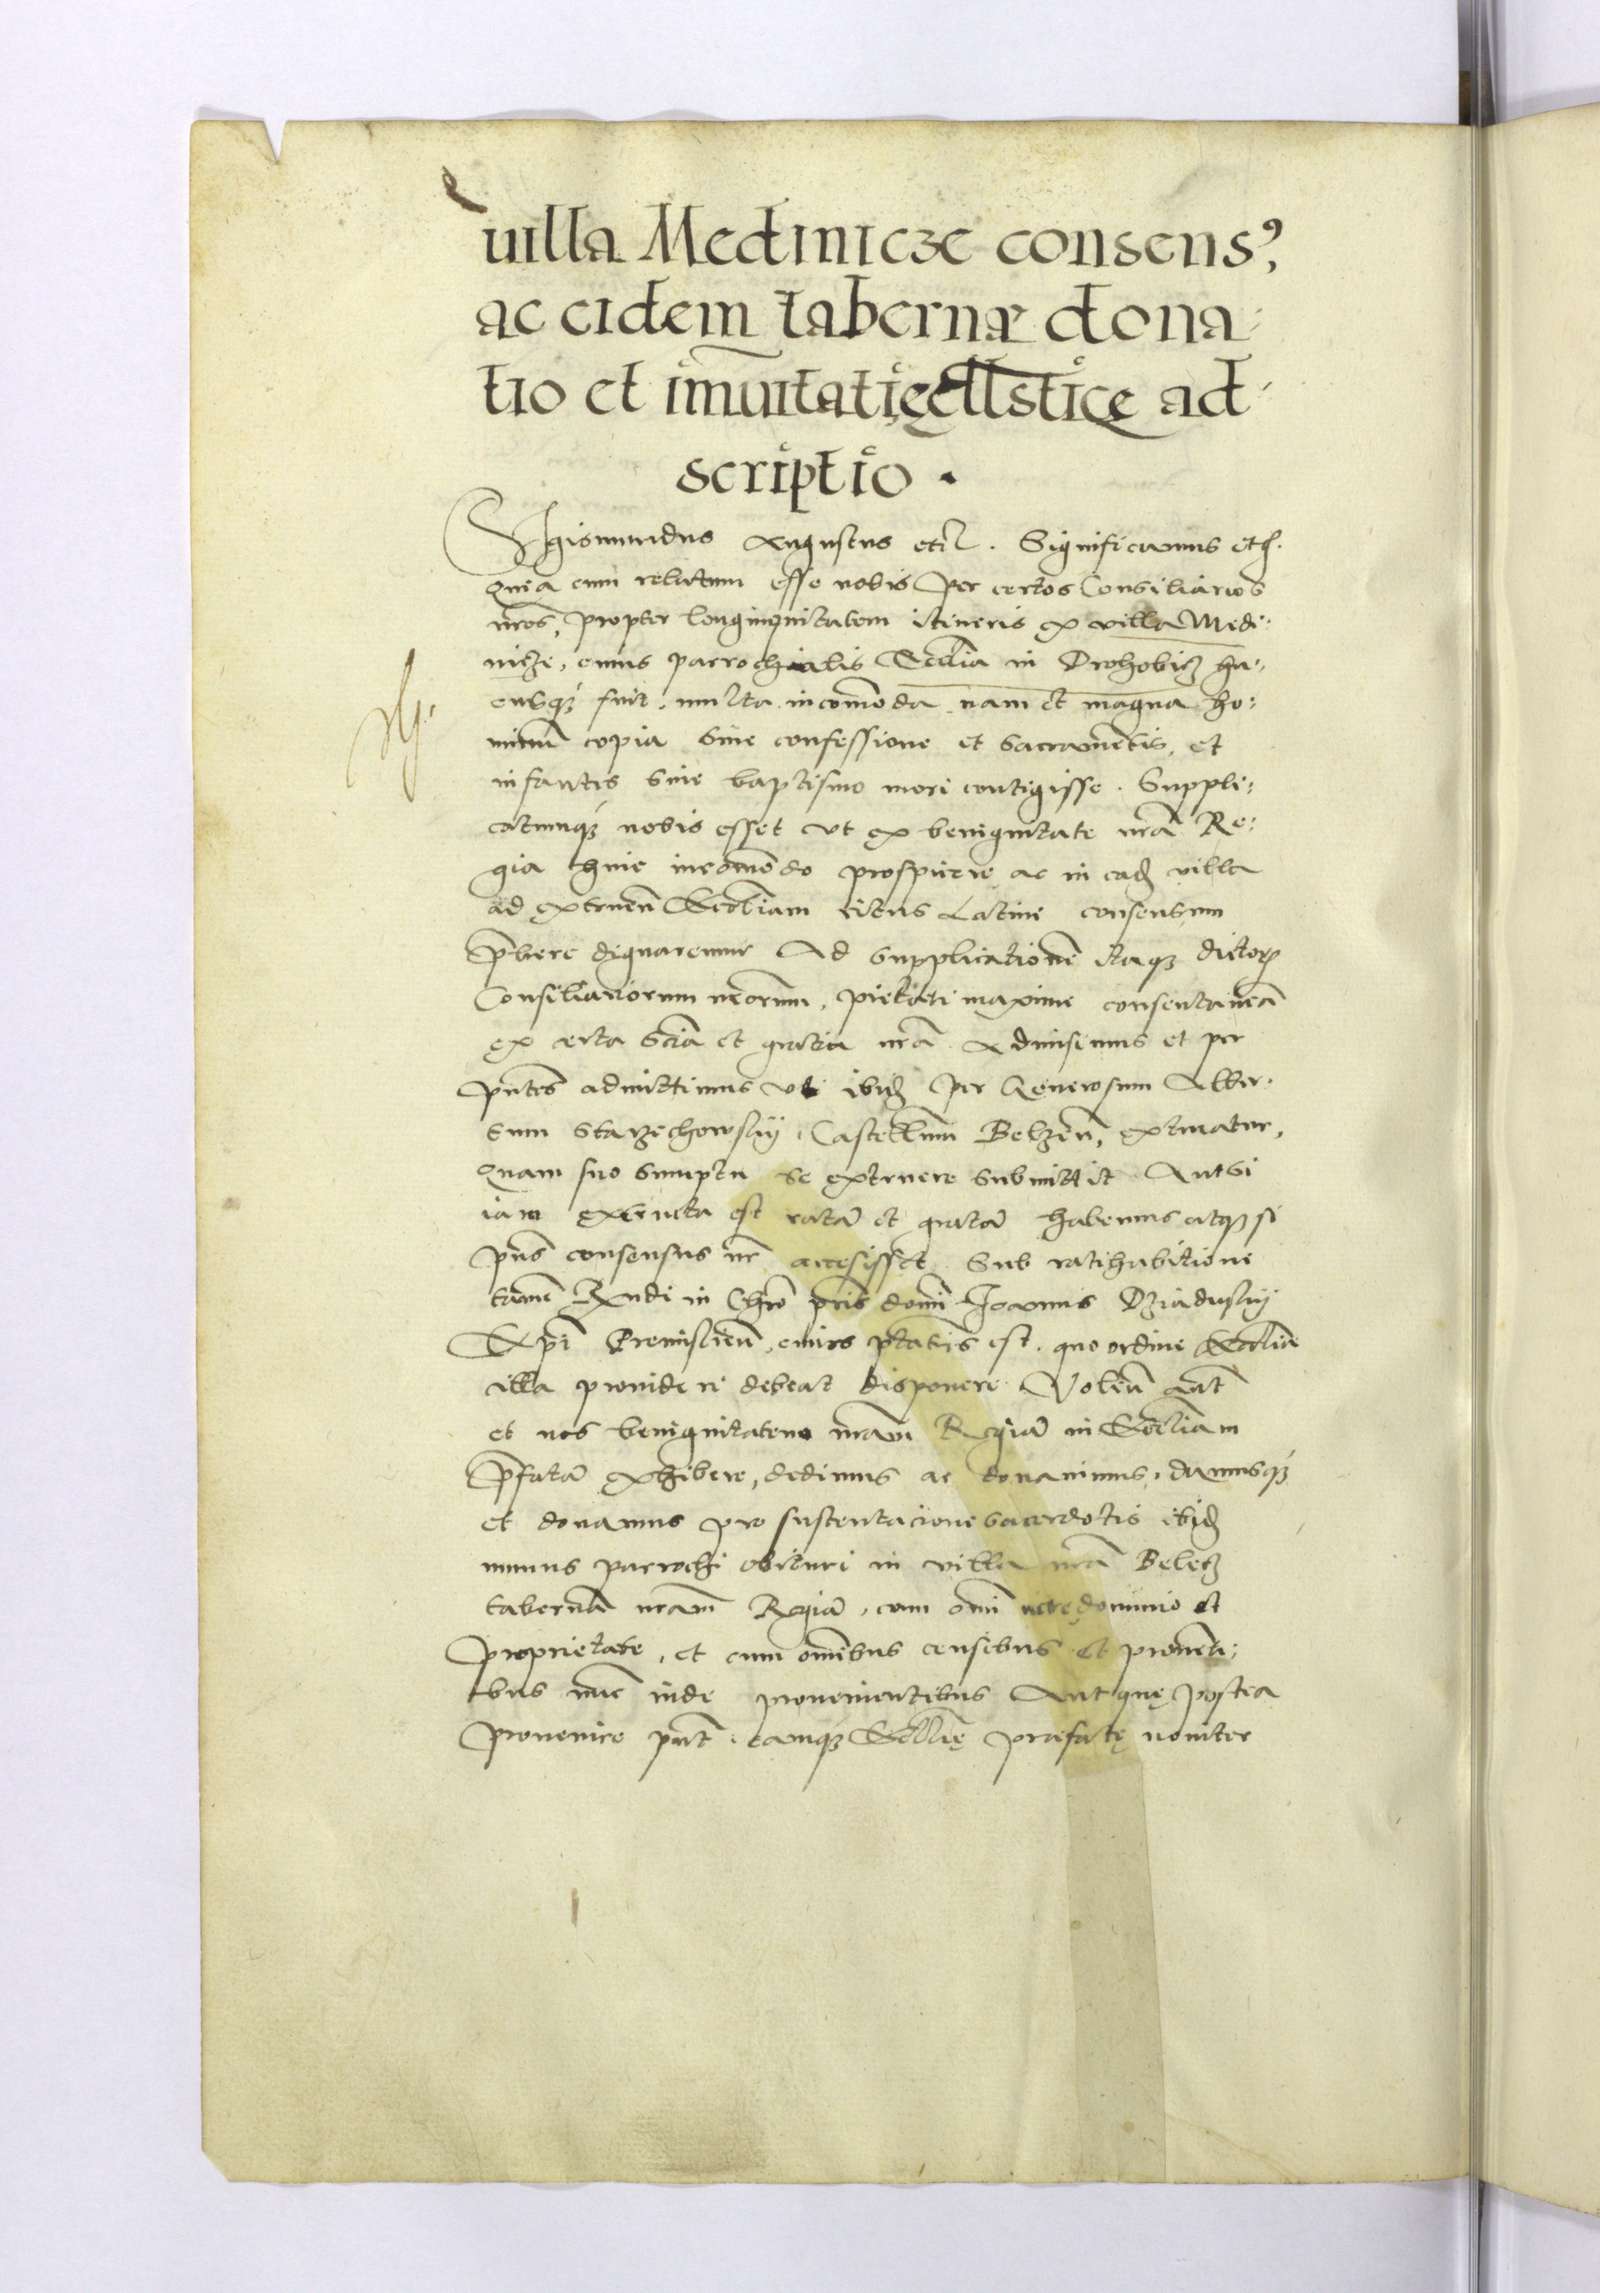 uilla Medinicze consens9
ac eidem tabernæ dona-
tio et im̄uitatięcllsticę ad-
scriptio.
Sigismundus Augustus etc. Significamus etc.
Quia cum relatum esse nobis per certos Consiliarios
nr̄os, propter longinquitatem itineris ex villa Medi:
nicze, cuius parrochialis Ecclia in Drohobicz ha:
ctusq3 fuit, multa incōmoda nam et magna ho:
minū copia sine confessione et sacramētis, et
infantes sine baptismo mori contigisse. Suppli:
catumq3 nobis esset vt ex benignitate nr̄a Re:
gia huic incōmodo prospicere ac in ead villa
ad extruen̄ Eccliam ritus Latini consensum
p̄bere dignaremur Ad supplicationē itaq3 dictor
Consiliariorum nr̄orum, pietati maxime consentaneā
ex certa sciā et gratia nr̄a Admisimus et per
pn̄tes admittimus vt ibid per Generosum Alber:
tum Starzechowsky Castellanum Belzen̄, extruatur,
Quam suo sumptu se extruere submittit Aut si
iam extructa est ratā et gratā habemus atq3 si
pn̄s consensus nr̄ accesisset Sub ratihabitione
tamē Rn̄di in Chro pr̄is domī Joannis Dziadusky
Epī Premislien̄, cuius ptatis est, quo ordine Eccliā
illa prouideri debeat disponere Volen̄ aūt
et nos benignitatem nr̄am Regiā in Eccliam
p̄fatā exhibere, dedimus ac donauimus, damusq3
et donamus pro sustentacione sacerdotis ibid
munus parrochi obituri in villa nr̄a Belecz
tabernā nr̄am Regiā, cum omī iure dominio et
proprietate, et cum omībus censibus et prouēti:
bus nūc inde prouenientibus Aut quę postea
prouenire pn̄t, eamq3 Ecclię præfatę nouiter